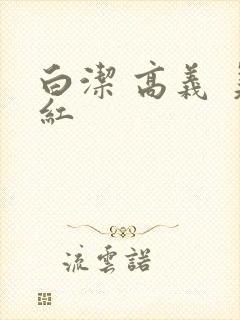 白潔 高義
紅
流雲諾